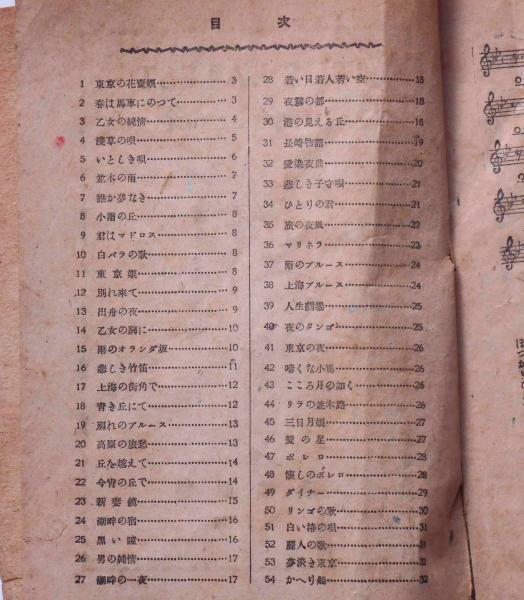 目次
1 東京の花賣娘 3
2 春は馬車にのつて 3
3 乙女の純情 4
4 淺草の唄 5
5 いとしき唄 6
6 並木の雨 7
7 誰か夢なき 7
8 小雨の丘 8
9 君はマドロス 8
10 白バラの歌 8
11 東京娘 8
12 別れ來て 9
13 出舟の夜 9
14 乙女の胸に 10
15 雨のオランダ坂 10
16 悲しき竹笛 11
17 上海の街角で 12
18 青き丘にて 12
19 別れのブルース 13
20 高原の旅愁 13
21 丘を越えて 14
22 今宵の丘で 14
23 新妻鏡 15
24 湖畔の宿 16
25 黒い瞳 16
26 男の純情 17
27 湖畔の一夜 17
28 若い日若人若い空 18
29 夜霧の都 18
30 港の見える丘 18
31 長崎物語 19
32 愛染夜曲 20
33 悲しき子守唄 21
34 ひとりの君 21
35 旅の夜風 22
36 マリネラ 23
37 雨のブルース 24
38 上海ブルース 24
39 人生劇場 25
40 夜のタンゴ 25
41 東京の夜 26
42 暗くな小馬 26
43 こころ月の如く 26
44 リラの並木路 26
45 三日月娘 27
46 愛の星 27
47 ボレロ 28
48 懷しのボレロ 28
49 ダイナー 29
50 リンゴの歌 30
51 白い椿の唄 31
52 麗人の歌 31
53 夢淡き東京 32
54 かへり船 32